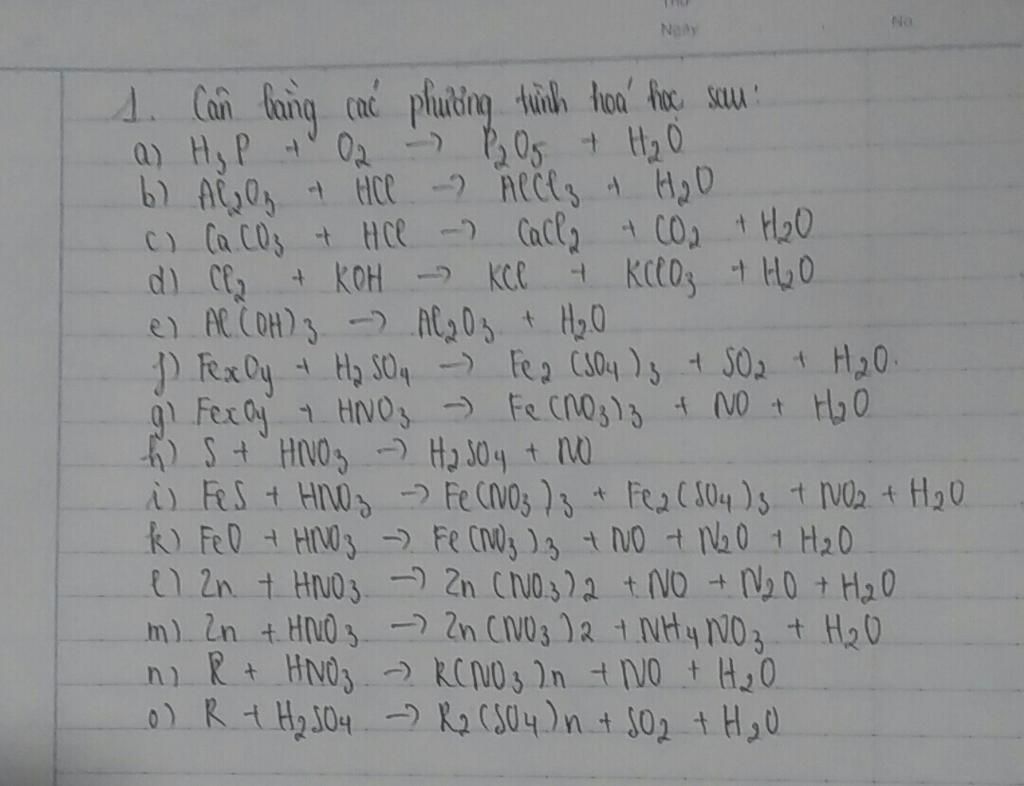 Thứ
Ngày
No.
1. Cân bằng các phương trình hoá học sau:
a) H₃P + O₂ → P₂O₅ + H₂O
b) Al₂O₃ + HCl → AlCl₃ + H₂O
c) CaCO₃ + HCl → CaCl₂ + CO₂ + H₂O
d) Cl₂ + KOH → KCl + KClO₃ + H₂O
e) Al(OH)₃ → Al₂O₃ + H₂O
f) FexOy + H₂SO₄ → Fe₂(SO₄)₃ + SO₂ + H₂O.
g) FexOy + HNO₃ → Fe(NO₃)₃ + NO + H₂O
h) S + HNO₃ → H₂SO₄ + NO
i) FeS + HNO₃ → Fe(NO₃)₃ + Fe₂(SO₄)₃ + NO₂ + H₂O
k) FeO + HNO₃ → Fe(NO₃)₃ + NO + N₂O + H₂O
l) Zn + HNO₃ → Zn(NO₃)₂ + NO + N₂O + H₂O
m) Zn + HNO₃ → Zn(NO₃)₂ + NH₄NO₃ + H₂O
n) R + HNO₃ → R(NO₃)n + NO + H₂O
o) R + H₂SO₄ → R₂(SO₄)n + SO₂ + H₂O